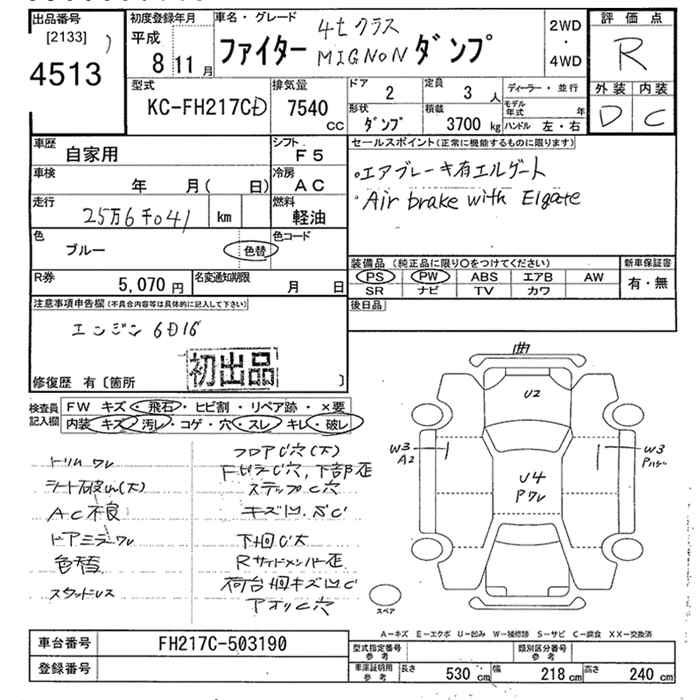 出品番号
[2133]
4513
初度登録年月
平成
8年 11月
車名・グレード
ファイター 4tクラス MIGNON ダンプ
2WD
・
4WD
評価点
R
外装 内装
D C
型式
KC-FH217CD
排気量
7540 CC
ドア
2
定員
3 人
ディーラー・並行
モデル年式 年
ハンドル 左・右
形状
ダンプ
積載
3700 kg
車歴
自家用
シフト
F5
車検
年 月( 日)
冷房
AC
走行
25万6千041 km
燃料
軽油
色
ブルー
色替
色コード
R券
5,070 円
名変通知期限
月 日
セールスポイント(正常に機能するものに限ります)
・エアブレーキ有エルゲート
・Air brake with Elgate
装備品(純正品に限り○をつけてください)
PS PW ABS エアB AW
SR ナビ TV カワ
新車保証書
有・無
後日品
注意事項申告欄(不具合内容等は具体的に記入して下さい)
エンジン 6D16
初出品
修復歴 有〔箇所 〕
検査員記入欄
FW キズ・飛石・ヒビ割・リペア跡・×要
内装 キズ・汚レ・コゲ・穴・スレ・キレ・破レ
トリム ワレ
AC不良
ドアミラーワレ
色替
スタッドレス
フロアC穴(大)
ステップC穴
キズ凹・サビC
下回C大
Rサイドメンバー歪
荷台 回キズ凹C
アオリC穴
U2
W3
A2
U4
Pワレ
W3
スペア
A−キズ E−エクボ U−凹み W−補修跡 S−サビ C−腐食 XX−交換済
車台番号
FH217C-503190
登録番号
型式指定番号 参考
類別区分番号 参考
車庫証明用 参考
長さ 530 cm
幅 218 cm
高さ 240 cm